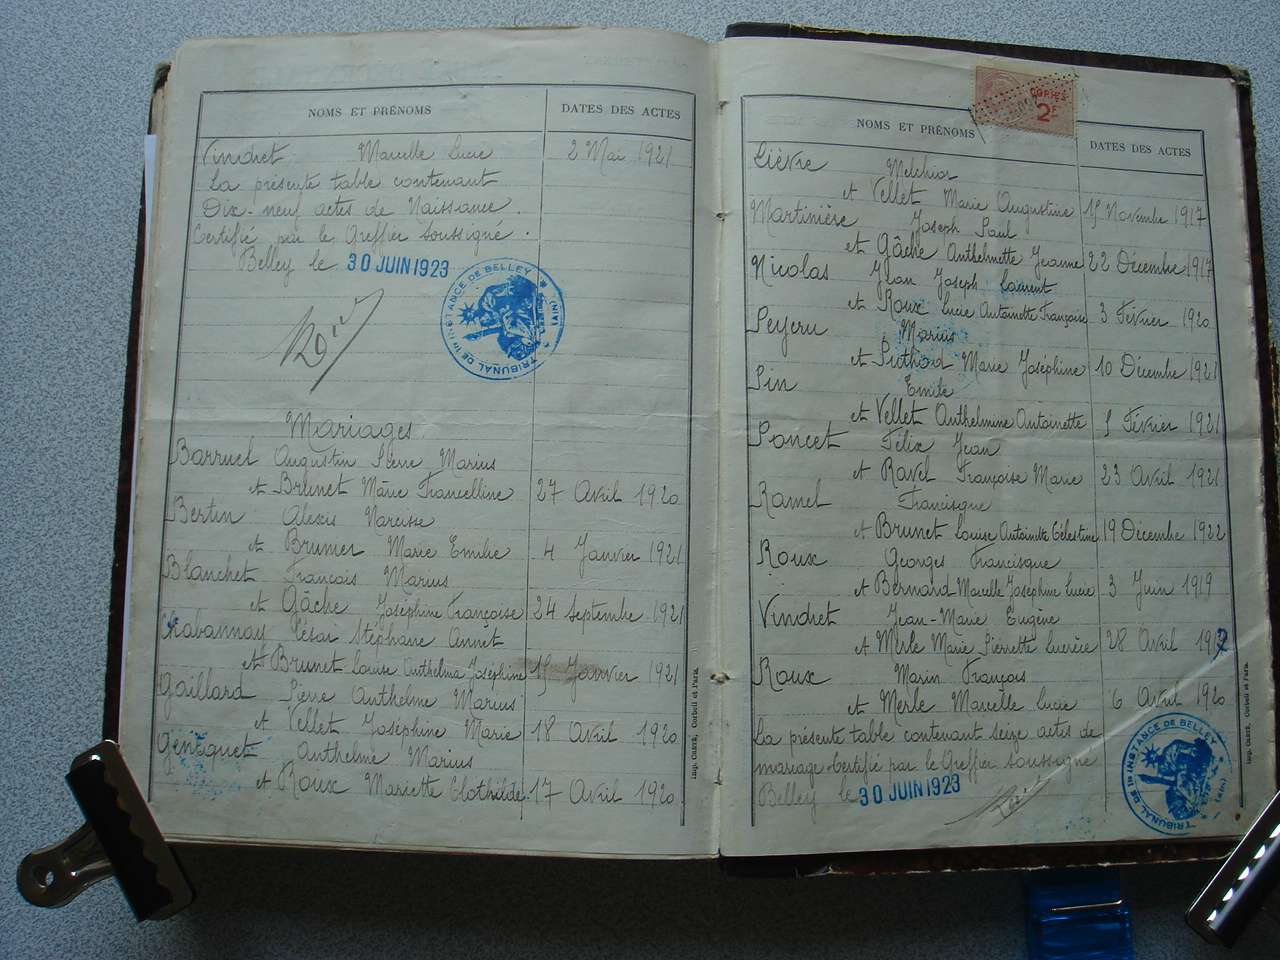 NOMS ET PRÉNOMS DATES DES ACTES
Vindret Marcelle Lucie 2 Mai 1921
La présente table contenant
Dix-neuf actes de Naissance.
Certifié par le Greffier soussigné.
Belley le 30 JUIN 1923
TRIBUNAL DE 1re INSTANCE DE BELLEY (AIN)
Mariages
Barruel Augustin Pierre Marius
et Brunet Marie Francelline 27 Avril 1920
Bertin Alexis Narcisse
et Brumer Marie Emilie 4 Janvier 1921
Blanchet François Marius
et Gâche Joséphine Françoise 24 Septembre 1921
Chabannay César Stéphane Annet
et Brunet Louise Anthelma Joséphine 15 Janvier 1921
Gaillard Pierre Anthelme Marius
et Vellet Joséphine Marie 18 Avril 1920
Gentiquet Anthelme Marius
et Roux Mariette Clothilde 17 Avril 1920
Imp. Crété, Corbeil et Paris.
COPIES
2F
NOMS ET PRÉNOMS DATES DES ACTES
Lièvre Melchior
et Vellet Marie Augustine 15 Novembre 1917
Martinière Joseph Paul
et Gâche Anthelmette Jeanne 22 Décembre 1917
Nicolas Jean Joseph Laurent
et Roux Lucie Antoinette Françoise 3 Février 1920
Peycru Marius
et Puthod Marie Joséphine 10 Décembre 1921
Pin Emile
et Vellet Anthelmine Antoinette 5 Février 1921
Poncet Félix Jean
et Ravel Françoise Marie 23 Avril 1921
Ramel Francisque
et Brunet Louise Antoinette Célestine 19 Décembre 1922
Roux Georges Francisque
et Bernard Marcelle Joséphine Lucie 3 Juin 1919
Vindret Jean-Marie Eugène
et Merle Marie Pierrette Lucrèce 28 Avril
Roux Marin François
et Merle Marcelle Lucie 6 Avril 1920
La présente table contenant seize actes de
mariage certifié par le Greffier soussigné
Belley le 30 JUIN 1923
TRIBUNAL DE 1re INSTANCE DE BELLEY (AIN)
Imp. Crété, Corbeil et Paris.